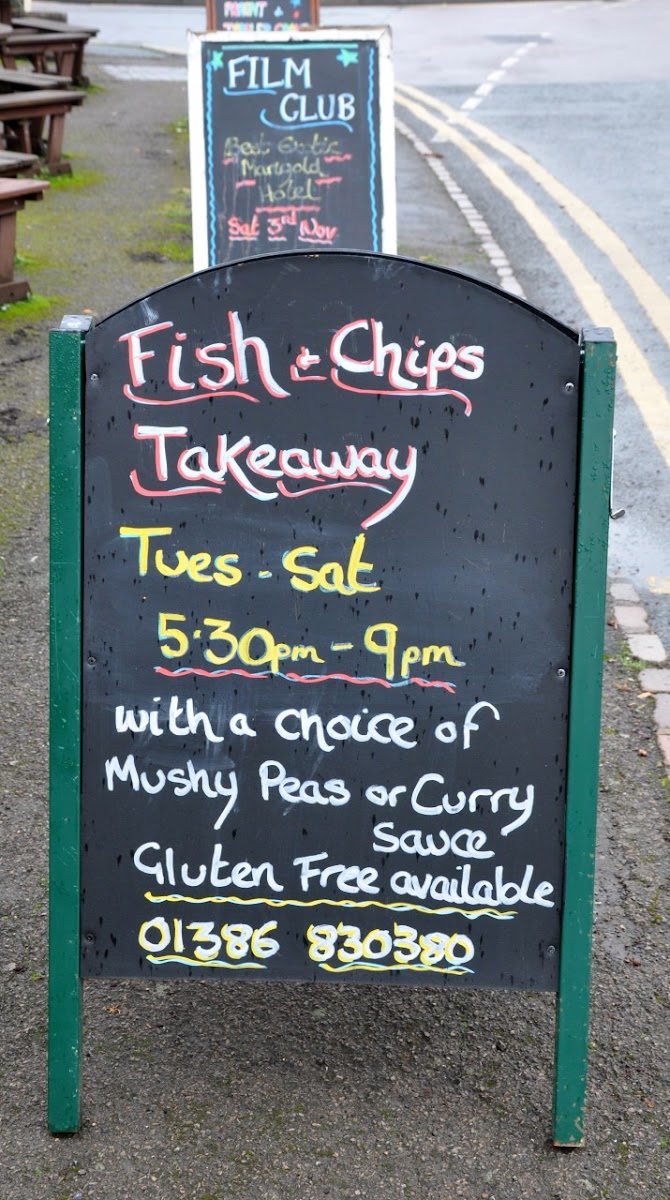 FILM
CLUB
Best Exotic
Marigold
Hotel
Sat 3rd Nov
Fish + Chips
Takeaway
Tues - Sat
5.30pm - 9pm
with a choice of
Mushy Peas or Curry
Sauce
Gluten Free available
01386 830380